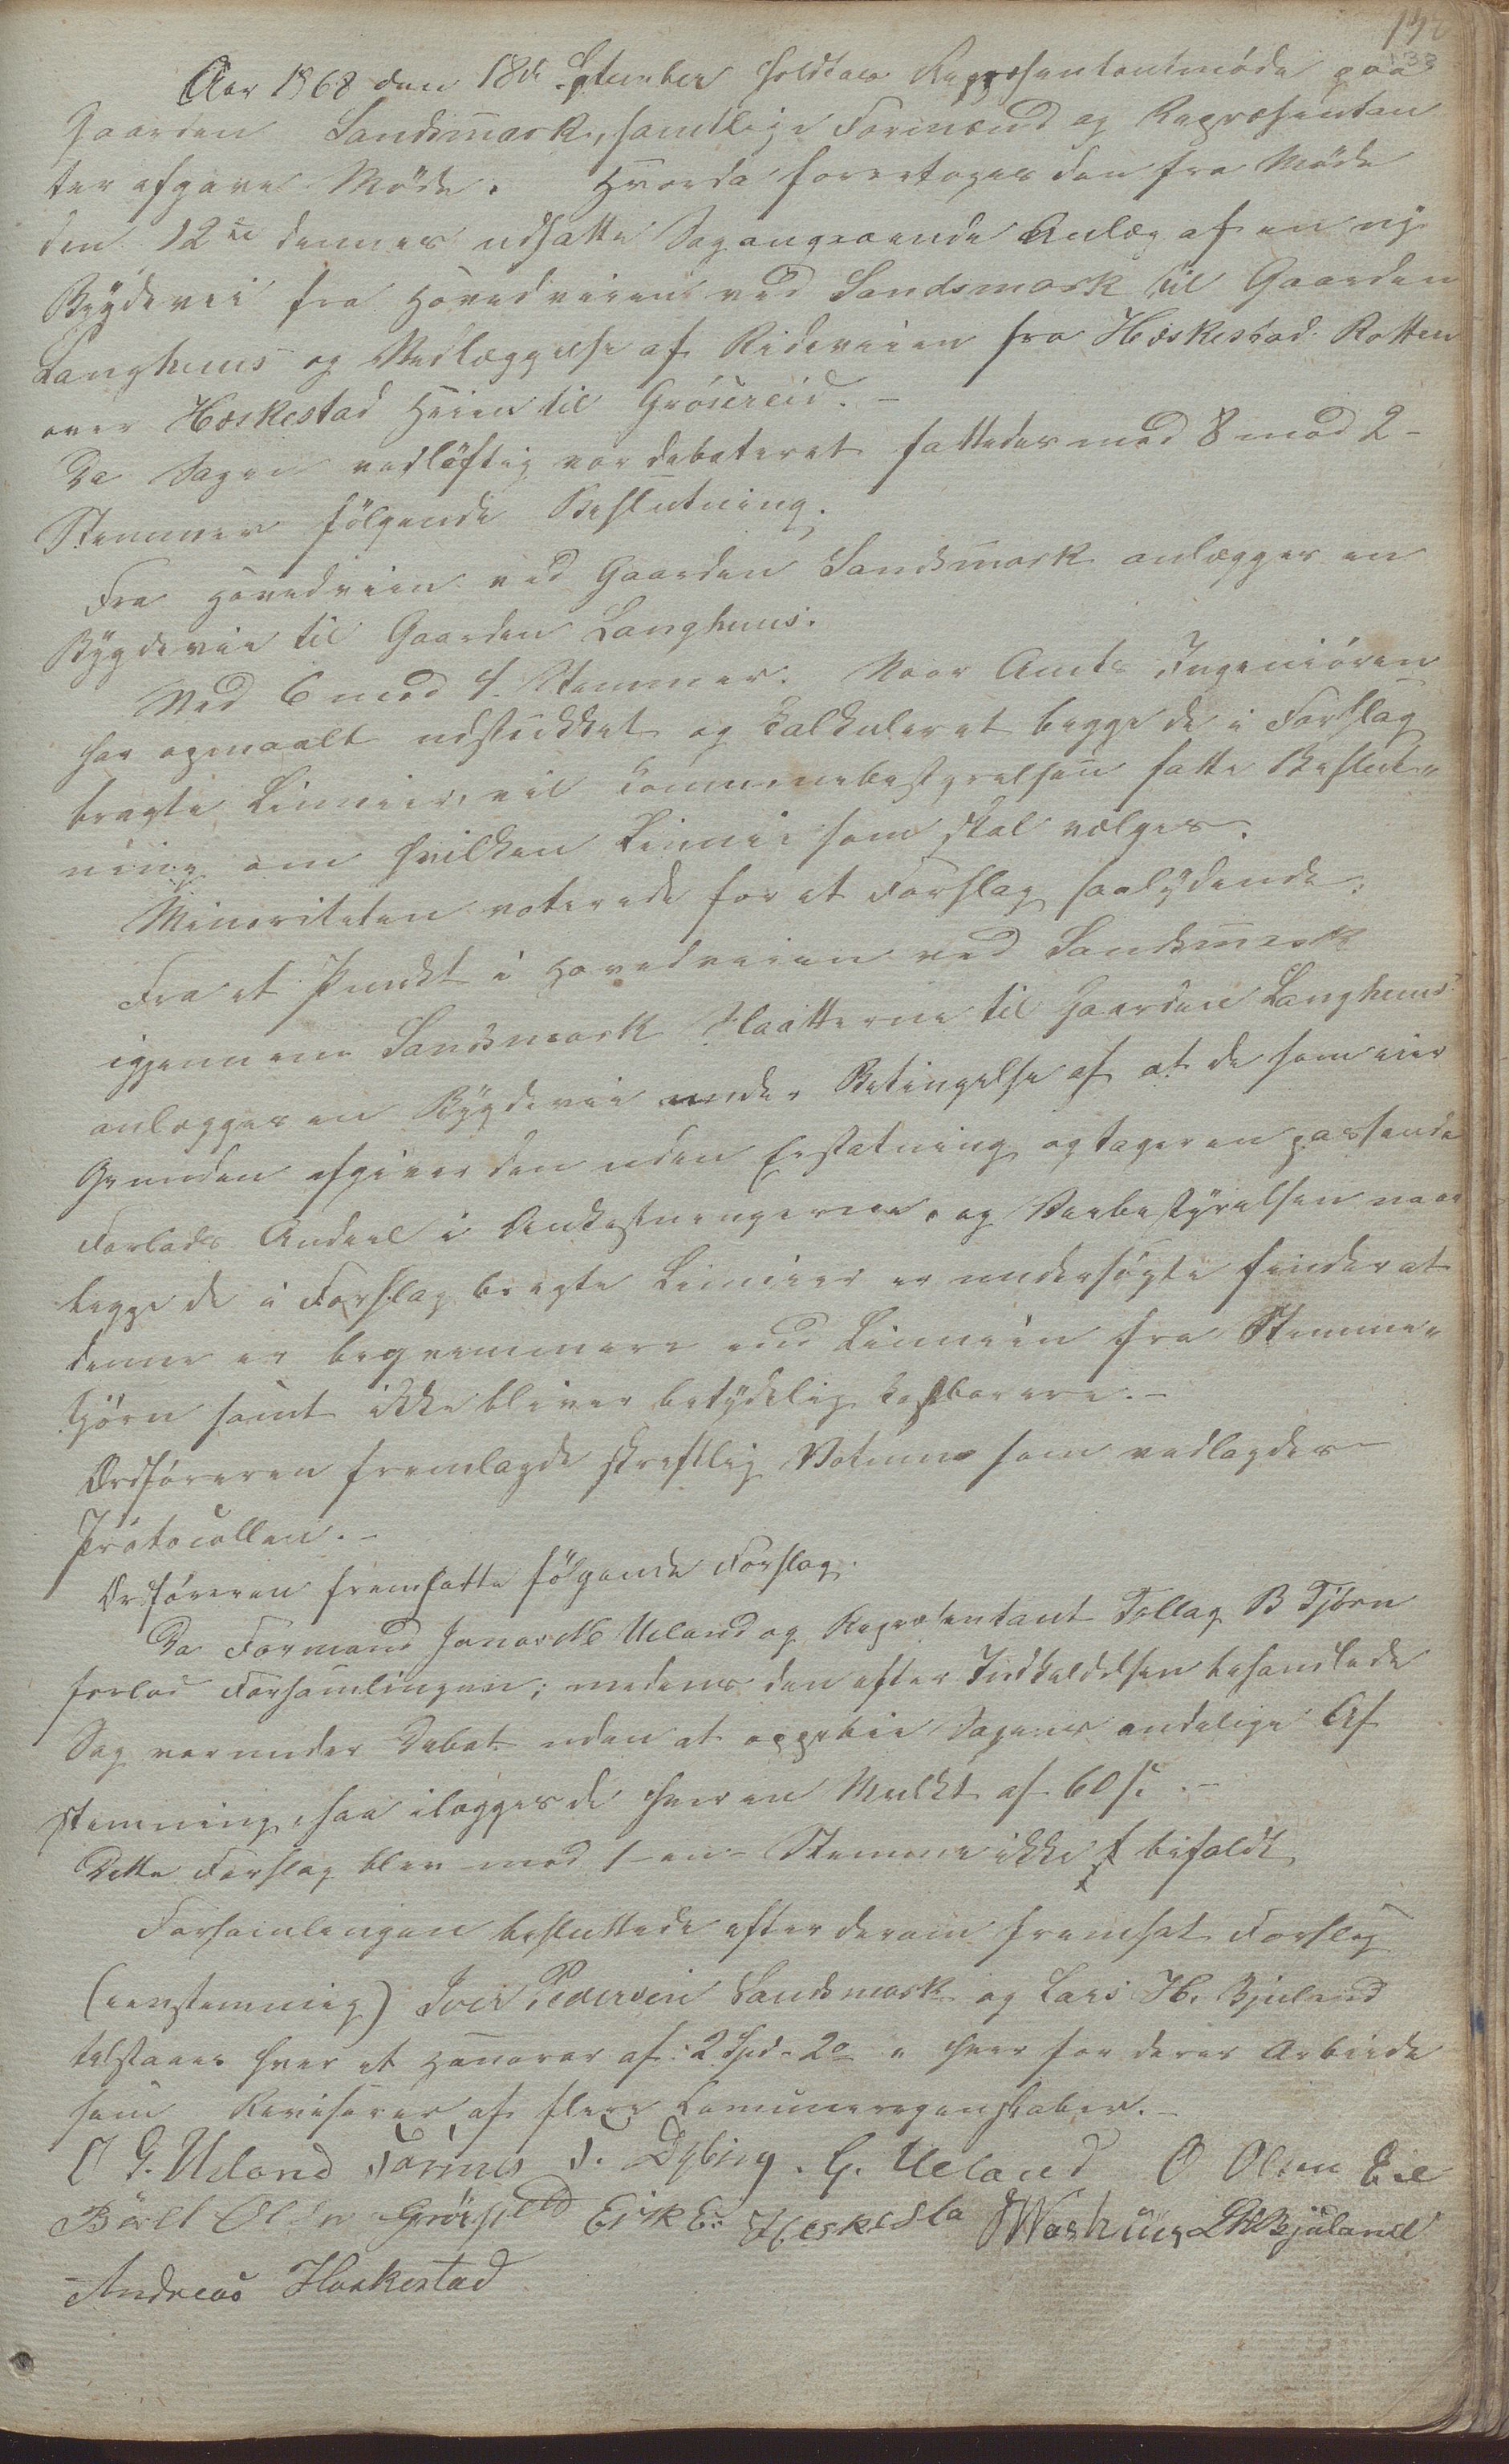 132
133
Aar 1868 den 18de September holdtes Repræsentantmöde paa
Gaarden Sandsmark, samtlige Formænd og Repræsentan
ter afgave Möde. Hvorda foretoges den fra Möde
den 12te dennes udsatte Sag angaaende Anlæg af en ny
Bygdevei fra Hovedveien ved Sandsmark til Gaarden
Langhuus og Nedlæggelse af Rideveien fra Hæskestad Rotten
over Hæskestad Heien til Grösereid. -
Da Sagen vedlöftig var debateret fattedes med 8 mod 2 -
Stemmer fölgende Beslutning.
Fra Hovedveien ved Gaarden Sandsmark anlægges en
Bygdevei til Gaarden Langhuus.
Med 6 mod 4 Stemmer. Naar Amts Ingeniören
har opmaalt udstukket og Kalkuleret begge de i Forslag
bragte Linnier, vil Communebestyrelsen fatte Beslut-
ning om hvilken Linnie som skal vælges.
Minoriteten voterede for et Forslag saalydende:
Fra et Punkt i Hovedveien ved Sandsmark
igjennem Sandsmark Slaatterne til Gaarden Langhuus
anlægges en Bygdevei under Betingelse af at de som eier
Grunden afgiver den uden Erstatning og tager en passende
Forlods Andeel i Omkostningerne, og Veibestyrelsen naar
begge de i Forslag bragte Linnier er undersögte finder at
denne er beqvemmere end Linnien fra Stemme-
tjörn samt ikke bliver betydelig kostbarere. -
Ordföreren fremlagde skriftlig Votum som vedlagdes
Protocollen. -
Ordföreren fremsatte fölgende Forslag.
Da Formand Jonas M Ueland og Repræsentant Tollag B Tjörn
forlod Forsamlingen; medens den efter Indkaldelsen behandlede
Sag var under Debat uden at oppebie Sagens endelige Af
stemning, saa ilægges de hver en Mulkt af 60 s. -
Dette Forslag blev med 1 en Stemme ikke bifaldt
Forsamlingen besluttede efter derom fremsat Forslag
(eenstemmig) Iver Pedersen Sandsmark og Lars H. Bjuland
tilstaaes hver et Honorar af 2 Spd. 2 " hver for deres Arbeide
som Revisorer af flere Communeregnskaber. -
O G. Ueland Tönnes T. Dybing. G. Ueland O Olsen Eie
Börilt Olsen Grösfield Erik E. Heskesta J Washuus LHBjuland
Andreas Haskestad